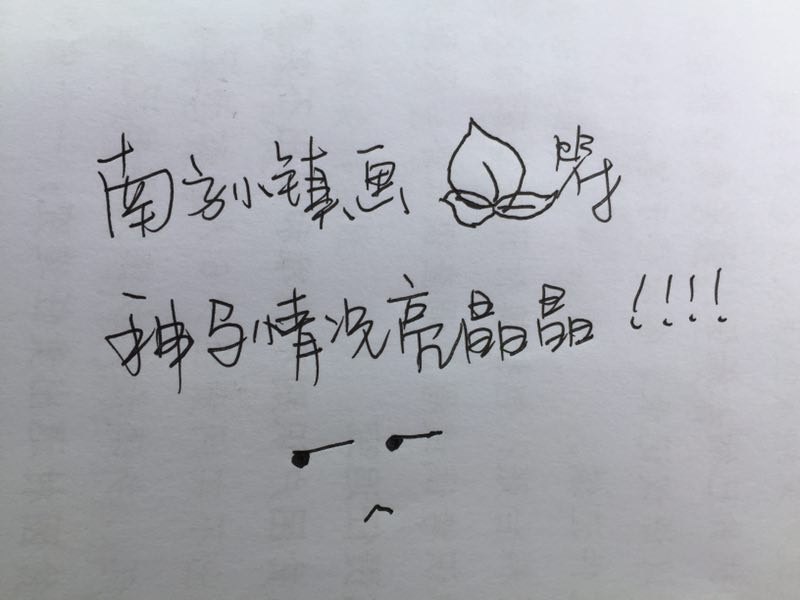 南方小镇画 时
神马情况亮晶晶!!!!